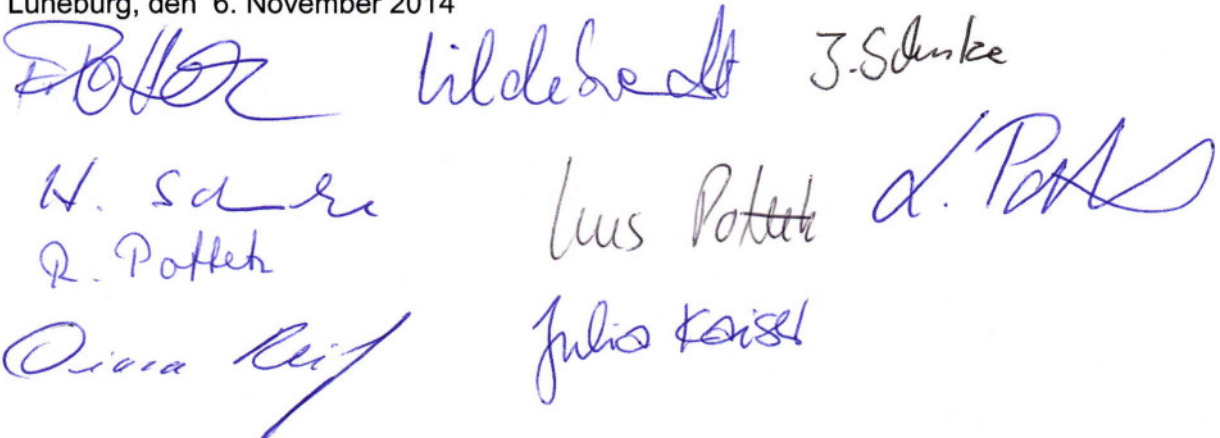 Lüneburg, den 6. November 2014
Hildebrandt J. Schuke
H.
Luis Pottek L. Pott
R. Pottek
Diana Reif Julia Kaiser